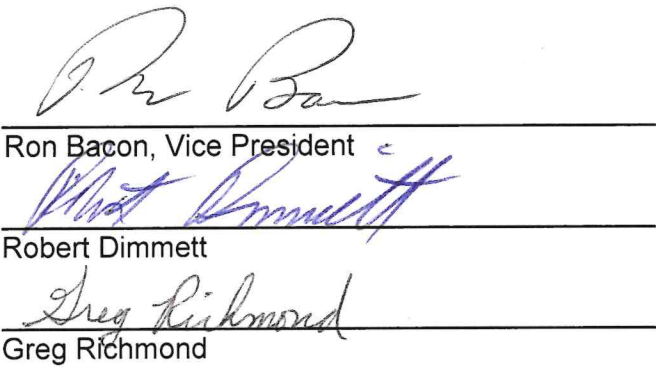 Ron Bacon
Ron Bacon, Vice President
Robert Dimmett
Robert Dimmett
Greg Richmond
Greg Richmond